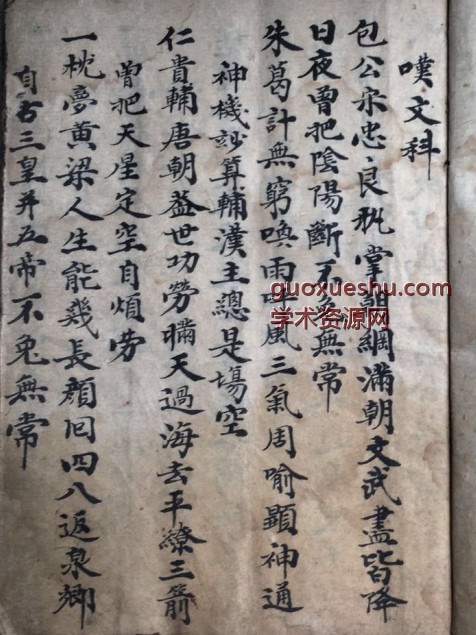 嘆文科
包公宋忠良執掌朝綱滿朝文武盡皆降
日夜曾把陰陽斷不免無常
朱葛計無窮喚雨呼風三氣周喻顯神通
神機妙算輔漢主總是塲空
仁貴輔唐朝蓋世功勞瞞天過海去平繚三箭
曾把天星定空自煩勞
一枕夢黄梁人生能幾長顔回四八返泉鄉
自古三皇并五帝不免無常
guoxueshu.com
学术资源网